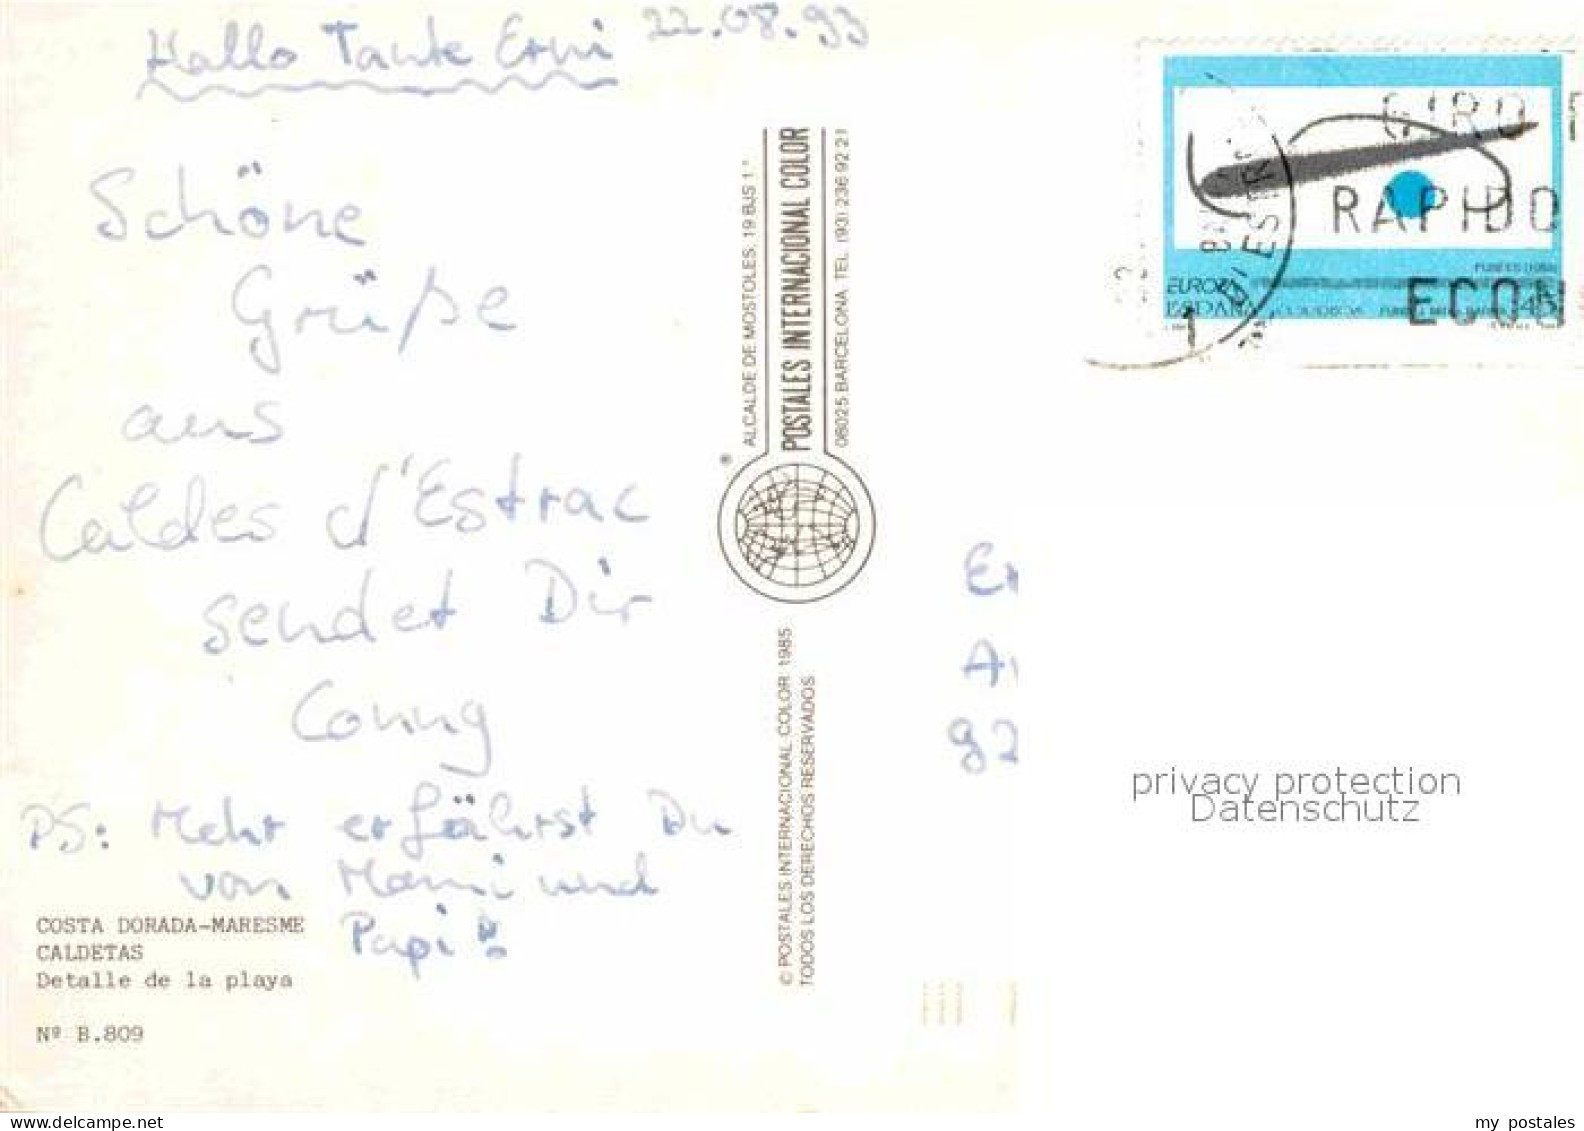 Hallo Tante Erni 22.08.93
Schöne
Grüße
aus
Caldes d'Estrac
sendet Dir
Conny
PS: Mehr erfährst Du
von Mami und
Papi!
COSTA DORADA-MARESME
CALDETAS
Detalle de la playa
Nº B.809
ALCALDE DE MOSTOLES, 19 BJS 1.ª
POSTALES INTERNACIONAL COLOR
08025 BARCELONA TEL. (93) 236 92 21
© POSTALES INTERNACIONAL COLOR 1985
TODOS LOS DERECHOS RESERVADOS
GIRO
RAPIDO
ECON
EUROPA
ESPAÑA
45
92
privacy protection
Datenschutz
my postales